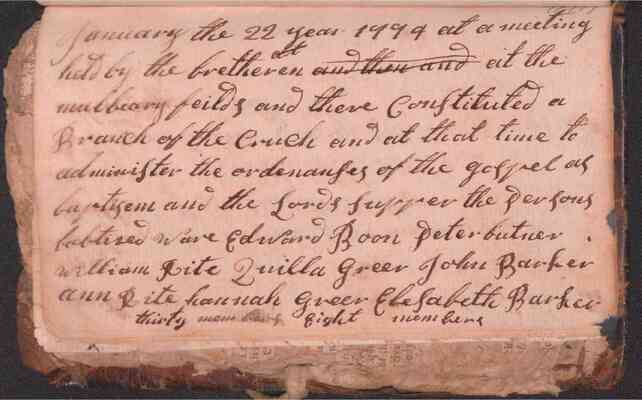 January the 22 year 1779 at a meeting
held by the bretheren at and then and at the
mulbeary feilds and there Constituted a
Branch of the Cruch and at that time to
administer the ordenanses of the gospel as
baptisem and the Lords supper the persons
babtized ware Edward Boon Peter butner
William Rite Quilla Greer John Barker
ann Rite hannah Greer Elesabeth Barker
thirty members Eight members